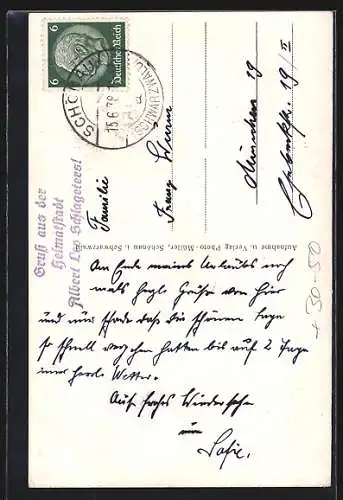 6 Deutsches Reich 6
SCHÖNAU (SCHWARZWALD)
15.6.38
a
Gruß aus der
Heimatstadt
Albert Leo Schlageters!
Familie
Franz
München 19
19/II
Aufnahme u. Verlag Photo-Müller, Schönau i. Schwarzwald
Am Ende meines Urlaubs noch
mals herzl. Grüße von hier
und nur schade daß die schönen Tage
so schnell vergehen hatten bis auf 2 Tage
immer herrl. Wetter.
Auf frohes Wiedersehen
30-50